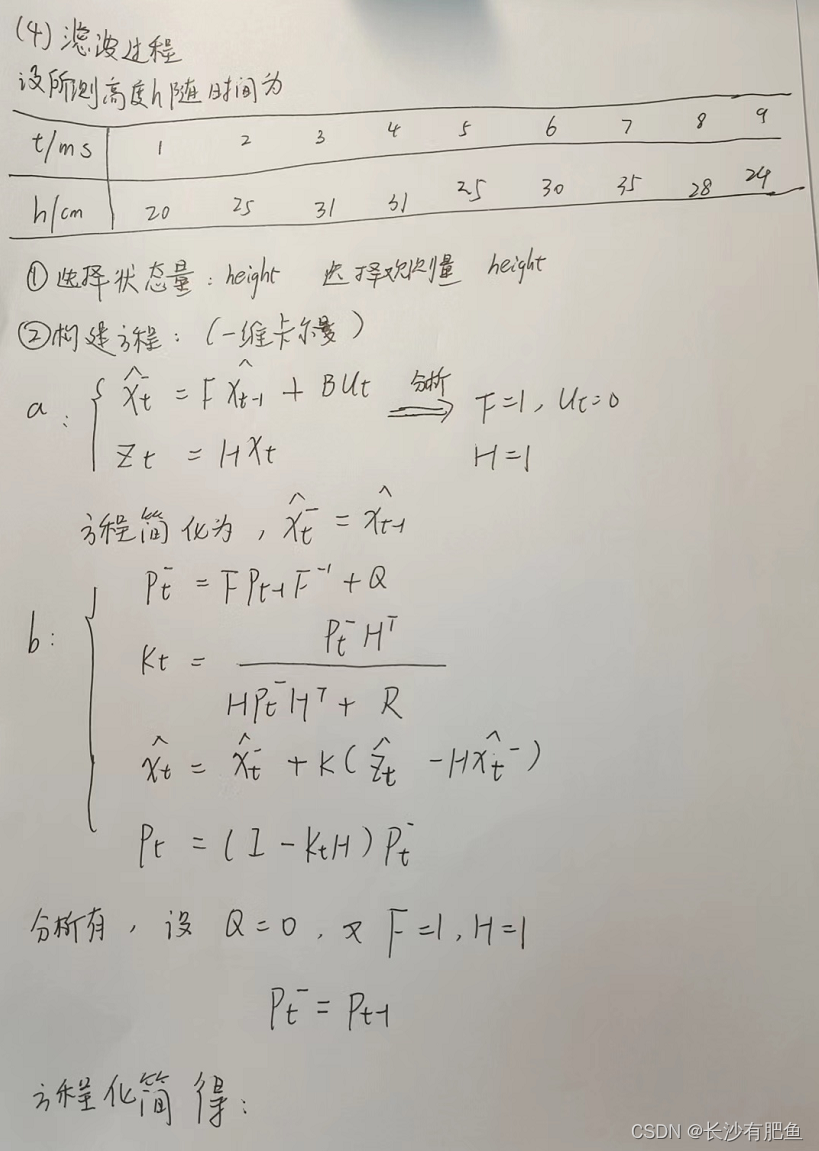 (4) 滤波过程
设所测高度h随时间为
t/ms 1 2 3 4 5 6 7 8 9
h/cm 20 25 31 31 25 30 35 28 24
①选择状态量：height 选择观测量 height
②构建方程：(一维卡尔曼)
a: { x̂t⁻ = F x̂t-1 + B Ut 分析 ⟹ F=1, Ut=0
Zt = H Xt H=1
方程简化为, x̂t⁻ = x̂t-1
b: { Pt⁻ = F Pt-1 F⁻¹ + Q
Kt = Pt⁻ Hᵀ / (H Pt⁻ Hᵀ + R)
x̂t = x̂t⁻ + K( ẑt - H x̂t⁻ )
Pt = ( I - Kt H ) Pt⁻
分析有, 设 Q=0, 又 F=1, H=1
Pt⁻ = Pt-1
方程化简得：
CSDN @长沙有肥鱼